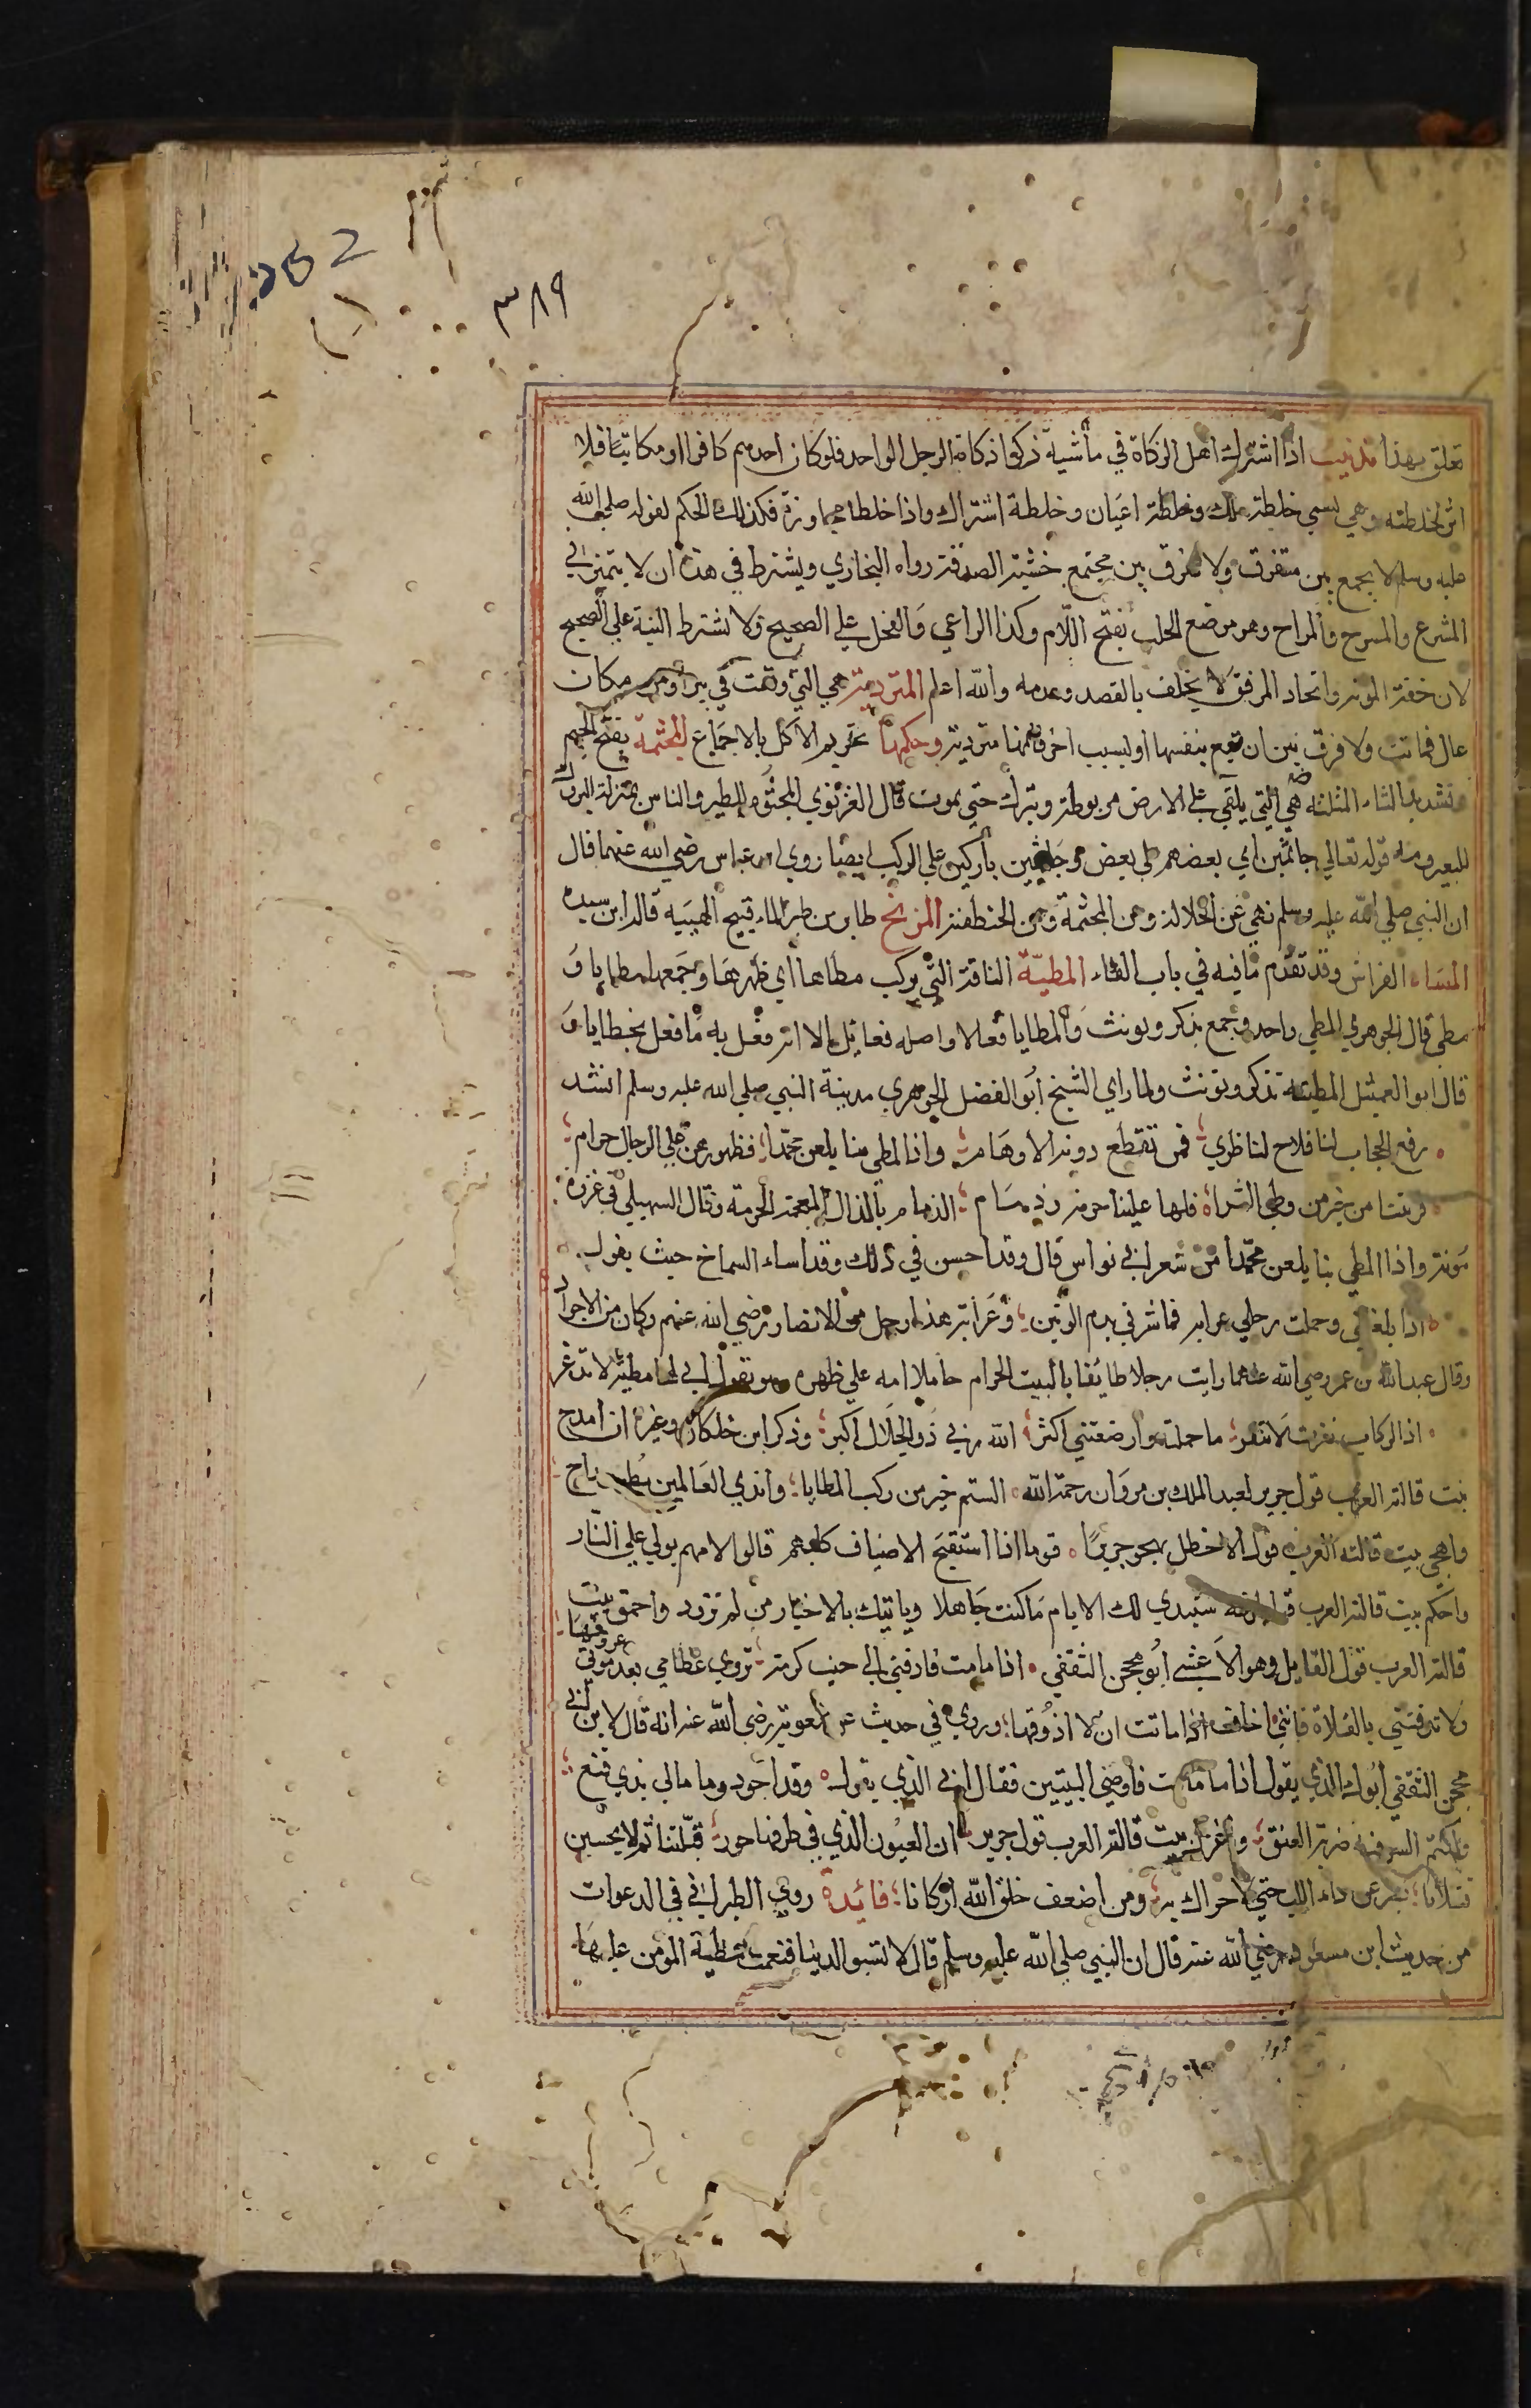 252
٣٨٩
تعلق بهذا تذنيب اذا اشترك اهل الزكاة في مأشية زكوا زكاة الرجل الواحد فلو كان احدهم كافرا او مكاتبا فلا
اثر لخلطته وهي تسمي خلطة ملك وخلطة اعيان وخلطة اشتراك واذا خلطا مجاورة فكذلك الحكم لقوله صلي الله
عليه وسلم لا يجمع بين متفرق ولا يفرق بين مجتمع خشية الصدقة رواه البخاري ويشترط في هذه ان لا يتميز في
المشرع والمسرح والمراح وهو موضع الحلب بفتح اللام وكذا الراعي والفحل علي الصحيح ولا تشترط النية علي الصحيح
لان خفة المونة واتحاد المرفق لا يختلف بالقصد وعدمه والله اعلم المتردية هي التي وقعت في بير او من مكان
عال فماتت ولا فرق بين ان تقع بنفسها او بسبب اخر فانها متردية وحكمها تحريم الاكل بالاجماع المجثمة بفتح الجيم
وتشديد الثاء المثلثة هي التي يلقي علي الارض مربوطة وتترك حتي يموت قال الغزنوي المجثوم للطير والناس بمنزلة البروك
للبعير ومنه قوله تعالي جاثمين اي بعضهم علي بعض وجاثمين باركين علي الركب ايضا روي ابن عباس رضي الله عنهما قال
ان النبي صلي الله عليه وسلم نهي عن الجلالة وعن المجثمة وعن الخطفة المرنح طاير من طير الماء قبيح الهيية قاله ابن سيده
المساء الفراش وقد تقدم ما فيه في باب الفاء المطية الناقة التي يركب مطاها اي ظهرها وجمعها مطايا و
مطي قال الجوهري المطي واحد وجمع يذكر ويونث والمطايا فعالا واصله فعايل الا انه فعل به ما فعل بخطايا و
قال ابو العميثل المطية تذكر وتونث ولما راي الشيخ ابو الفضل الجوهري مدينة النبي صلي الله عليه وسلم انشد
رفع الحجاب لنا فلاح لناظري فمن تقطع دونه الاوهام واذا المطي بنا بلغن محمدا فظهورهن علي الرجال حرام
قربتنا من خير من وطي الثراه فلها علينا حرمة وذمسام الذمام بالذال المعجمة الحرمة وقال السهيلي في غزوة
موتة واذا المطي بنا بلغن محمدا من شعر ابي نواس قال وقد احسن في ذلك وقد اساء الشماخ حيث يقول
اذا بلغتني وحملت رحلي عرابه فاشرقي بدم الوتين وعرابة هذا رجل من الانصار رضي الله عنهم وكان من الاجواد
وقال عبد الله بن عمر رضي الله عنهما رايت رجلا طايفا بالبيت الحرام حاملا امه علي ظهره وهو يقول اني لها مطية لا تذعر
اذ الركاب نفرت لا تنفر ما حملت وارضعتني اكثر الله ربي ذو الجلال اكبر وذكر ابن خلكان وغيره ان امدح
بيت قالته العرب قول جرير لعبد الملك بن مروان رحمة الله الستم خير من ركب المطايا واندي العالمين بطون راح
واهجي بيت قالته العرب قول الاخطل يهجو جريرا قوما اذا استقبح الاضياف كلبهم قالوا لامهم بولي علي النار
واحكم بيت قالته العرب قول طرفة ستبدي لك الايام ما كنت جاهلا وياتيك بالاخبار من لم تزود واحمق بيت
قالته العرب قول القايل وهو الاعشي ابو محجن الثقفي اذا ما مت فادفني الي جنب كرمة تروي عظامي بعد موتي عروقها
ولا تدفنني بالفلاة فانني اخاف اذا ما تت ان لا اذوقها وروي في حديث عن معوية رضي الله عنه انه قال لابن لابي
محجن الثقفي ابوك الذي يقول اذا ما مت فاوصي البيتين فقال ابي الذي يقول وقد اجود وما مالي بذي فنع
واكتم السر فيه ضربة العنق واغزل بيت قالته العرب قول جرير ان العيون الذي في طرفها حور قتلننا ثم لا يحسين
قتلانا يصرعن ذاء اللب حتي لا حراك به ومن اضعف خلق الله اركانا فائدة روي الطبراني في الدعوات
من حديث ابن مسعود رضي الله عنه قال ان النبي صلي الله عليه وسلم قال لا تسبوا الدنيا فنعمت مطية المومن عليها